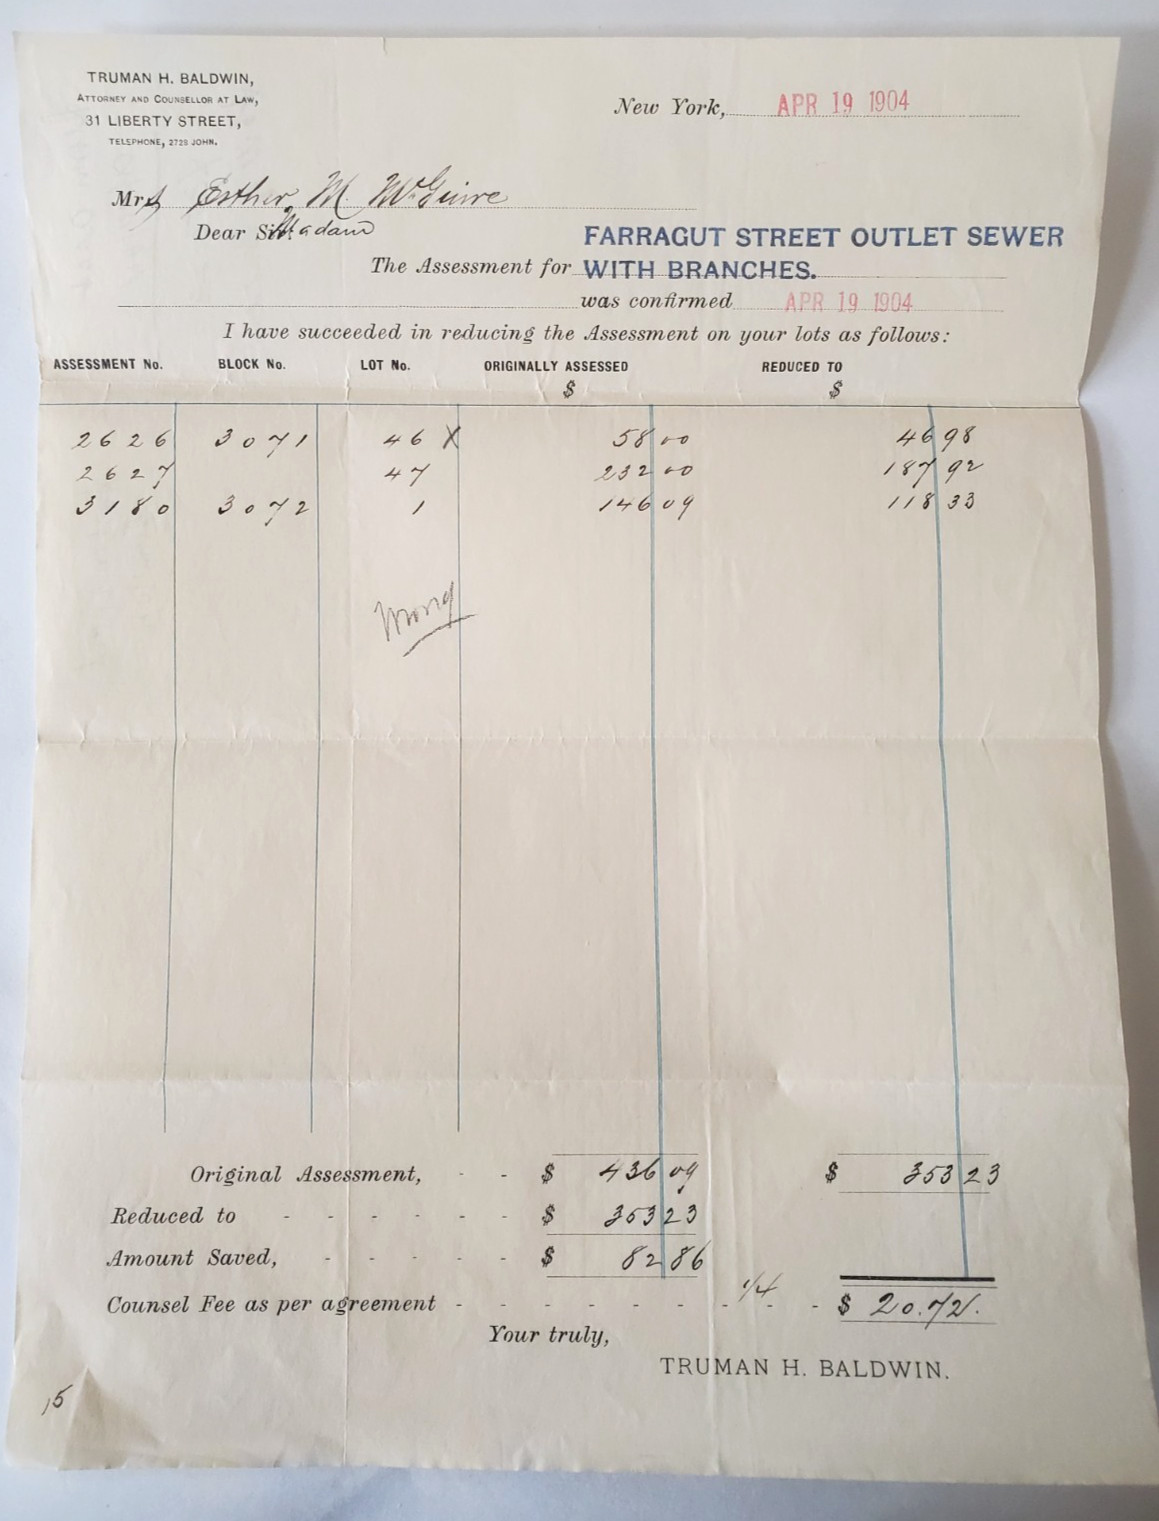 TRUMAN H. BALDWIN,
ATTORNEY AND COUNSELLOR AT LAW,
31 LIBERTY STREET,
TELEPHONE, 2728 JOHN.
New York, APR 19 1904
Mrs Esther M. McGuire
Dear Madam
FARRAGUT STREET OUTLET SEWER
The Assessment for WITH BRANCHES.
was confirmed APR 19 1904
I have succeeded in reducing the Assessment on your lots as follows:
ASSESSMENT No. BLOCK No. LOT No. ORIGINALLY ASSESSED REDUCED TO
$ $
2626 3071 46 X 58 00 46 98
2627 47 232 00 187 92
3180 3072 1 146 09 118 33
Wrong
Original Assessment, - - $ 436 09 $ 353 23
Reduced to - - - - - - $ 353 23
Amount Saved, - - - - - $ 82 86
Counsel Fee as per agreement - - - - - - - 1/4 - - $ 20.72.
Your truly,
TRUMAN H. BALDWIN.
15